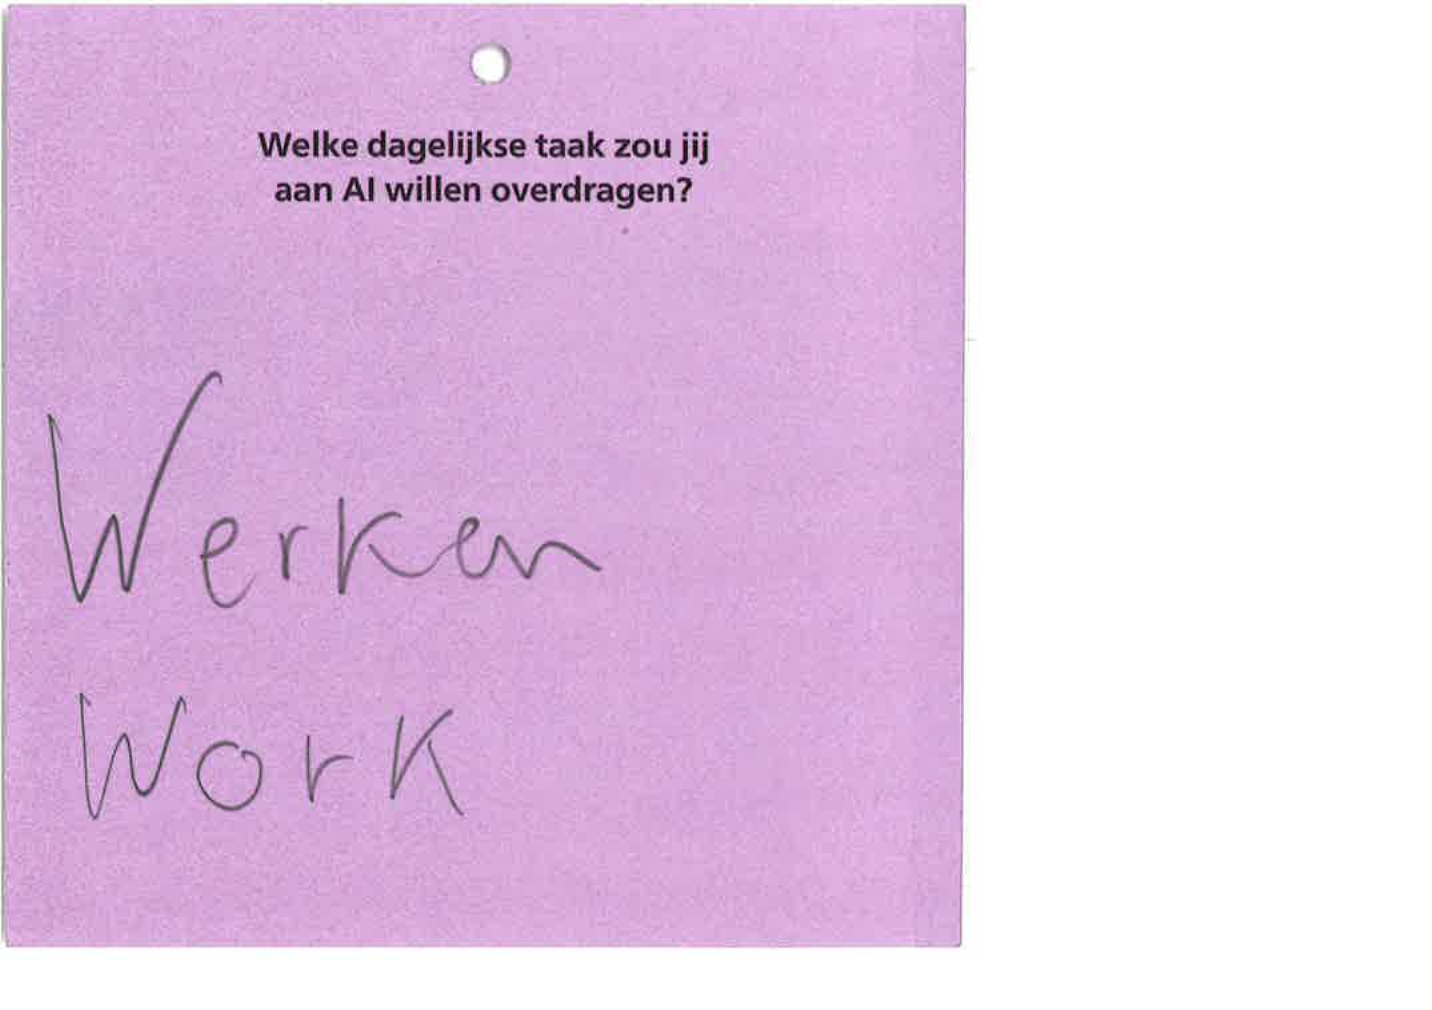 Welke dagelijkse taak zou jij
aan AI willen overdragen?
Werken
Work